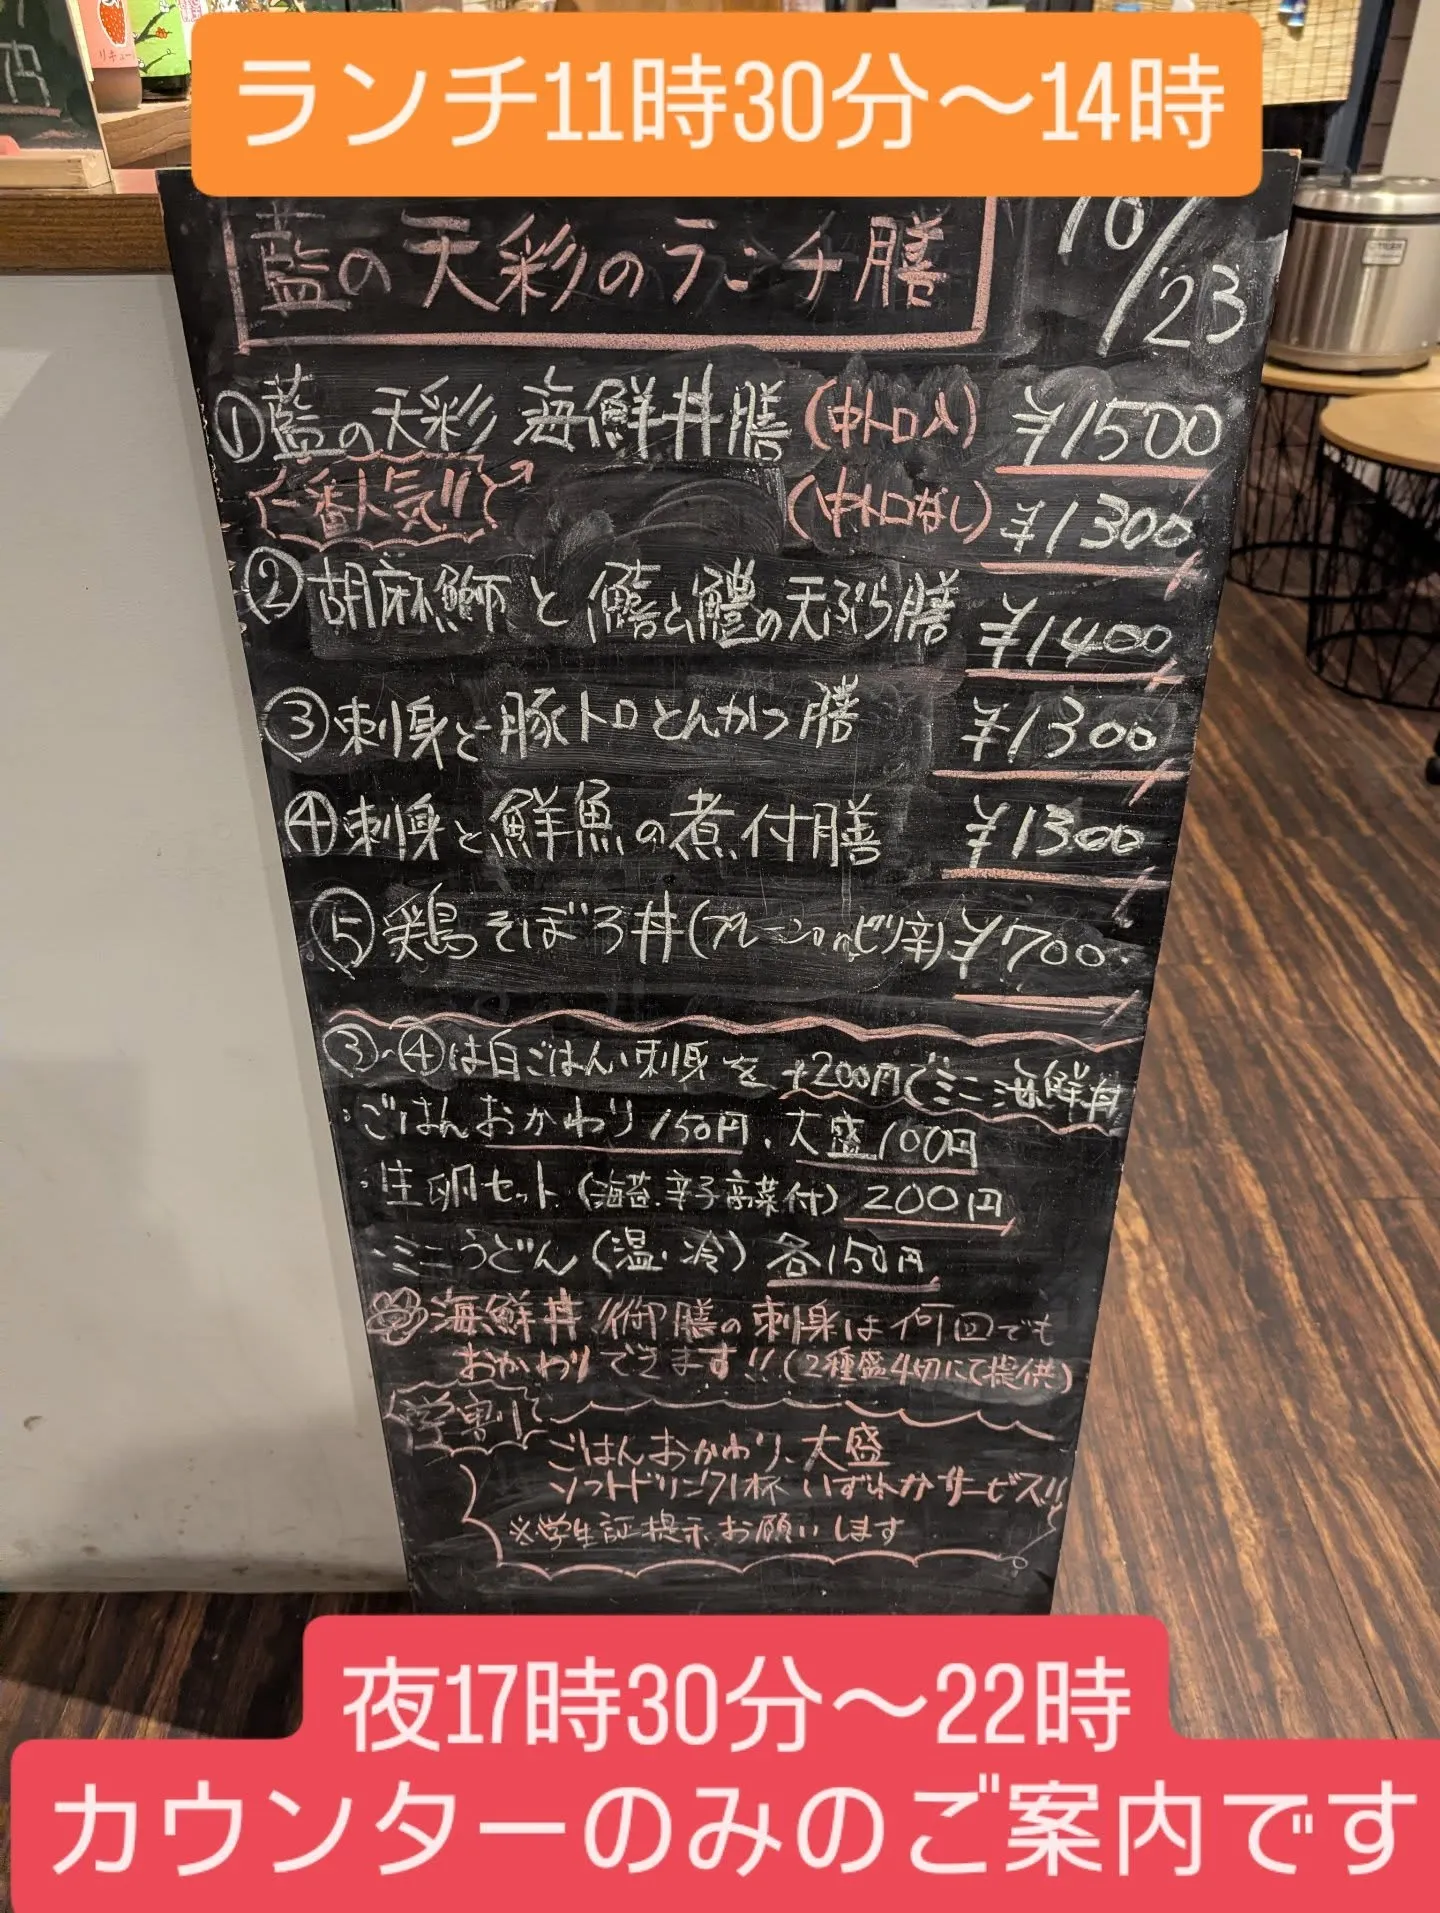 ランチ11時30分〜14時
リキュー
藍の天彩のランチ膳
10/23
①藍の天彩 海鮮丼膳(中トロ入) ¥1500
一番人気!! (中トロなし) ¥1300
②胡麻鰤と鱚と鱧の天ぷら膳 ¥1400
③刺身と豚トロとんかつ膳 ¥1300
④刺身と鮮魚の煮付膳 ¥1300
⑤鶏そぼろ丼(プレーンorピリ辛) ¥700
③、④は白ごはん、刺身を+200円でミニ海鮮丼
・ごはんおかわり150円、大盛100円
・生卵セット(海苔、辛子高菜付) 200円
・ミニうどん(温・冷) 各150円
海鮮丼、御膳の刺身は何回でも
おかわりできます!!(2種盛4切にて提供)
学割
ごはんおかわり、大盛
ソフトドリンク1杯 いずれかサービス!!
※学生証提示お願いします
夜17時30分〜22時
カウンターのみのご案内です